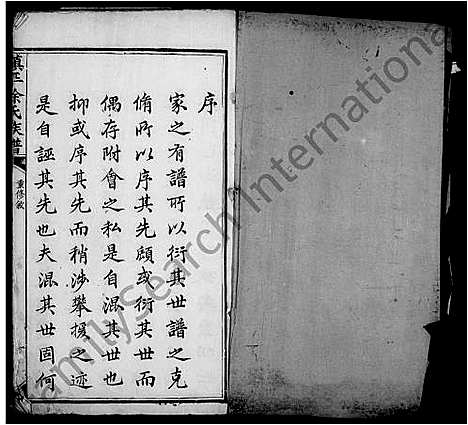 序
家之有譜所以衍其世譜之克
脩所以序其先顧或衍其世而
偶存附會之私是自混其世也
抑或序其先而稍涉攀援之迹
是自誣其先也夫混其世固何
鎮平徐氏族譜
重修敘
FamilySearch International